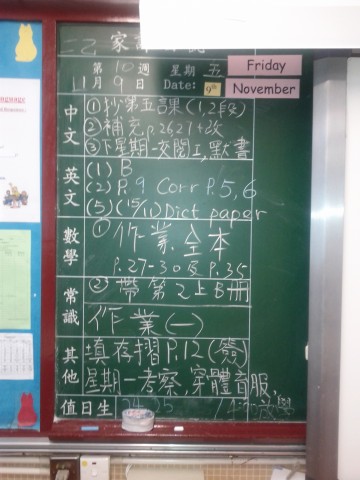 二乙家課
第10週 星期五 Friday
11月9日 Date: 9th November
中文 ①抄第五課(1,2段)
②補充p.26,27+改
③下星期一交閱工,默書
英文 (1) B
(2) P.9 Corr P.5,6
(5) (15/11) Dict paper
數學 ① 作業全本
P.27-30及P.35
常識 ② 帶第2上B冊
作業(一)
其他 填存摺P.12(簽)
星期一考察,穿體育服
值日生